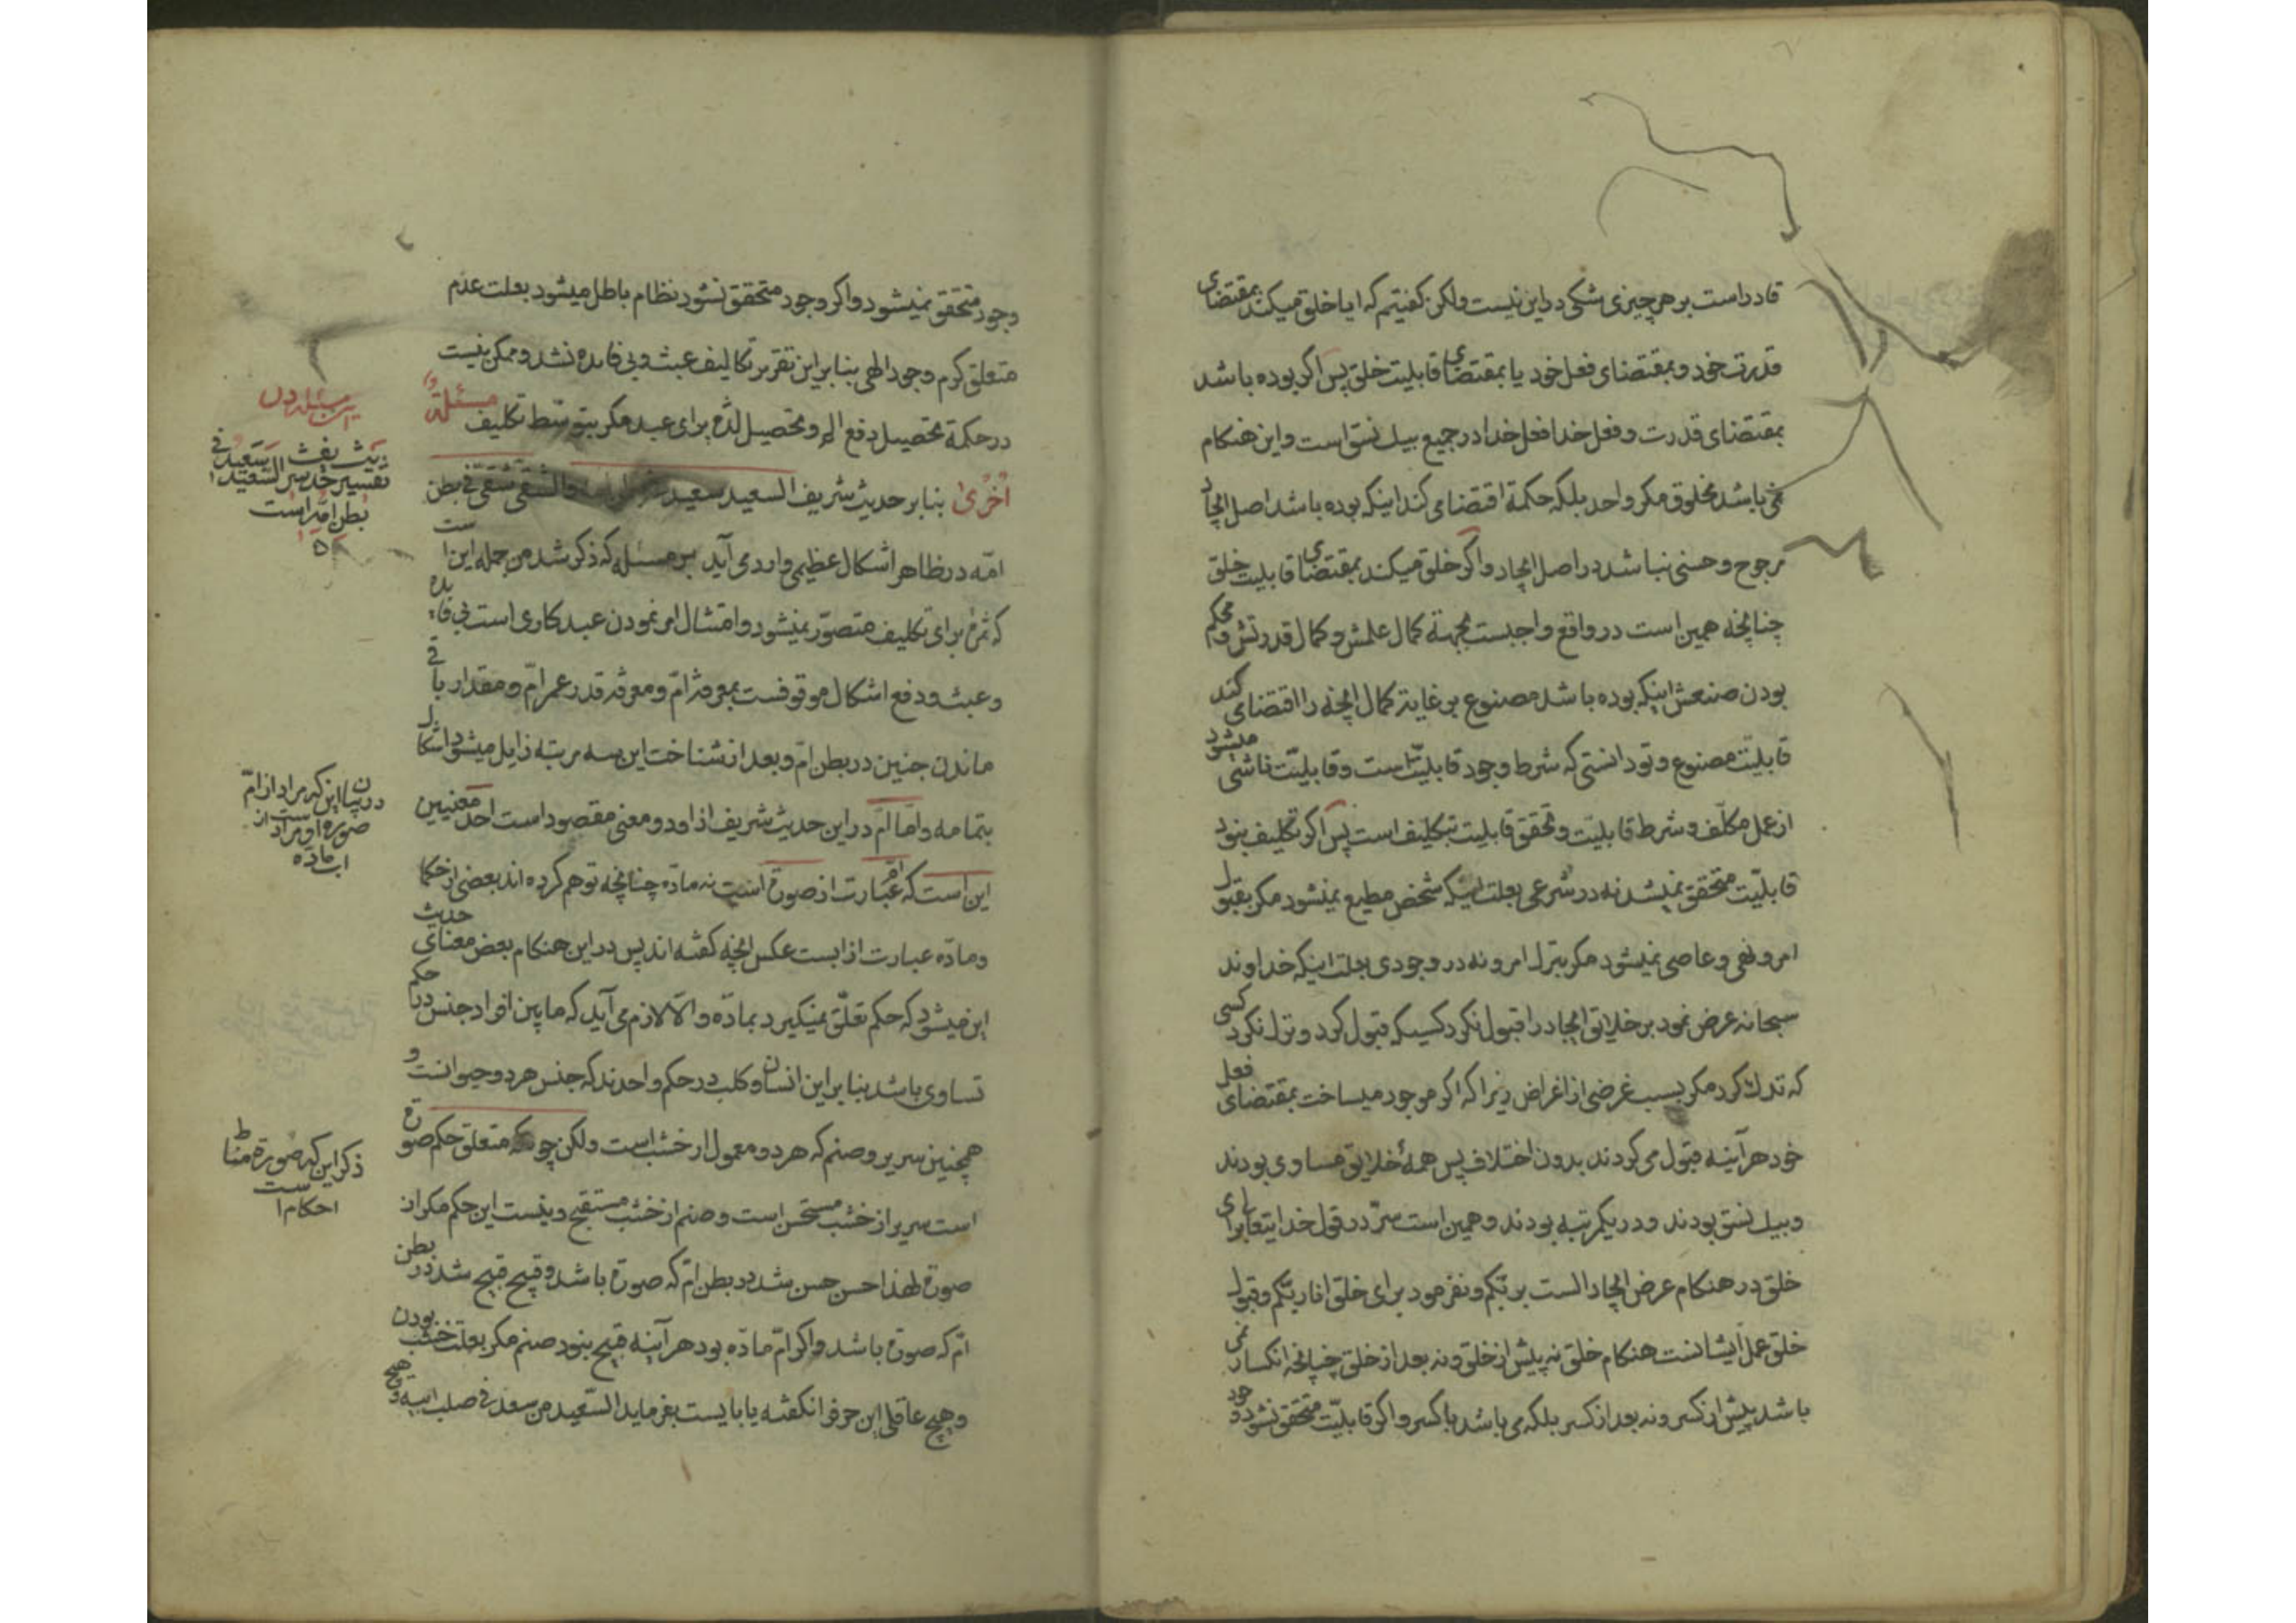 قادر است بر هر چیزی شکی در این نیست ولکن گفتیم که ایا خلق میکند بمقتضای
قدرت خود و بمقتضای فعل خود یا بمقتضای قابلیت خلق پس اگر بوده باشد
بمقتضای قدرت و فعل خدا فعل خدا در جمیع بیک نسق است و این هنکام
نمی باشد مخلوق مکر واحد بلکه حکمة اقتضا می کند اینکه بوده باشد اصل ایجاد
مرجوح و حسنی نباشد در اصل ایجاد و اگر خلق میکند بمقتضای قابلیت خلق
چنانچه همین است در واقع واجبست بجهة کمال علمش و کمال قدرتش و محکم
بودن صنعش اینکه بوده باشد مصنوع بر غایة کمال انچنه را اقتضای کند
قابلیّت مصنوع و تو دانستی که شرط وجود قابلیّتست و قابلیّت ناشی میشود
از عمل مکلّف و شرط قابلیّت و تحقق قابلیت تبکلیف است پس اگر تکلیف نبود
قابلیّت متحقق نمیشد نه در شرعی بعلت اینکه شخص مطیع نمیشود مکر بقبول
امر و نهی و عاصی نمیشود مکر بترک امر و نه در وجودی بعلت اینکه خداوند
سبحانه عرض نمود بر خلایق ایجاد را قبول نکرد کسیکه قبول کرد و ترک نکرد کسی
که ترک کرد مکر بسبب غرضی از اغراض زیرا که اگر موجود میساخت بمقتضای فعل
خود هر آینه قبول می کردند بدون اختلاف پس همهٔ خلایق مساوی بودند
و بیک نسق بودند و در یکرتبه بودند و همین است سرّ در قول خدایتعا برای
خلق در هنکام عرض ایجاد الست بربّکم و نفرمود برای خلق انا ربّکم و قبول
خلق عمل ایشانست هنکام خلق نه پیش از خلق و نه بعد از خلق چنانچه انکسار نمی
باشد پیش از کسر و نه بعد از کسر بلکه می باشد با کسر و اگر قابلیّت متحقق نشود
وجود متحقق نمیشود و اکر وجود متحقق نشود نظام باطل میشود بعلت عدم
متعلق کرم وجود الهی بنا بر این تقریر تکالیف عبث و بی فایده نشد و ممکن نیست
در حکمة تحصیل دفع الم و تحصیل لذّة برای عبد مکر بتوسّط تکلیف مسئلة
اخری بنا بر حدیث شریف السعید سعید فی بطن امه والشقی شقی فی بطن
امّه در ظاهر اشکال عظیمی وارد می آید بر مسئله که ذکر شد من جمله اینست
که ثمرة برای تکلیف متصوّر نمیشود و امتثال امر نمودن عبد کاری است بی فایده
و عبث و دفع اشکال موقوفست بمعرفة امّ و معرفة قدر عمر امّ و مقدار باقی
ماندن جنین در بطن امّ و بعد از شناخت این سه مرتبه زایل میشود اشکال
بتمامه و امّا امّ در این حدیث شریف از او دو معنی مقصود است احد معنیین
این است که امّ عبارت از صورة است نه مادّه چنانچه توهم کرده اند بعضی از حکما
و مادّه عبارت از ابست عکس انچه کفته اند پس در این هنکام بعض معنای حدیث
این میشود که حکم تعلّق نمیکیرد بمادّه و الّا لازم می آید که ما بین افراد جنس در حکم
تساوی باشد بنا بر این انسان و کلب در حکم واحدند که جنس هر دو حیوانست و
همچنین سریر و صنم که هر دو معمول از خشب است ولکن چونکه متعلق حکم صورة
است سریر از خشب مستحسن است و صنم از خشب مستقبح و نیست این حکم مکر از
صورة لهذا حسن حسن شد در بطن امّ که صورة باشد و قبیح قبیح شد در بطن
امّ که صورة باشد و اکر امّ مادّه بود هر آینه قبیح نبود صنم مکر بعلت خشب بودن
و هیچ عاقلی این حرف را نکفته یا بایست بفرماید السّعید من سعد فی صلب ابیه و هیچ
تفسیر حدیث السعید سعید فی
بطن امّه است
در بیان این که مراد از امّ
صورة و مراد از
اب مادّه است
ذکر این که صورة مناط
احکام است